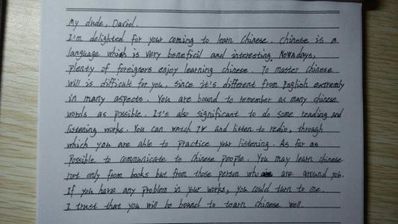 My dude, Dariel.
I'm delighted for your coming to learn Chinese. Chinese is a
language which is very beneficil and interesting. Nowadays,
plenty of foreigners enjoy learning chinese. To master Chinese
will is difficult for you, since it's different from English extremly
in many aspects. You are bound to remember as many chinese
words as possible. It's also significant to do some reading and
listening works. You can watch TV and listen to redio, through
which you are able to practice your listening. As far as
possible to communicate to Chinese people. You may learn chinese
not only from books but from those person who are around you.
If you have any problem in your works, you could turn to me.
I trust that you will be bound to learn Chinese well.